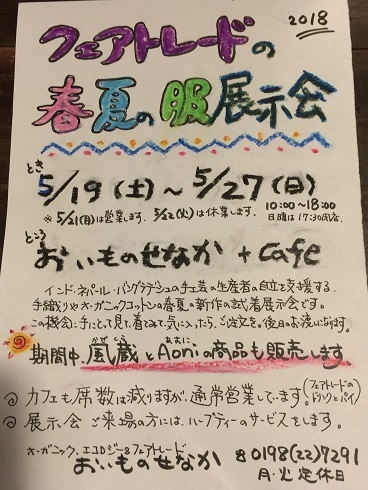 2018
フェアトレードの
春夏の服展示会
とき
5/19(土)〜5/27(日)
10:00〜18:00
※5/21(月)は営業します. 5/22(火)は休業します.
日曜は17:30閉店.
ところ
おいものせなか + cafe
インド・ネパール・バングラデシュの手工芸の生産者の自立を支援する、
手織りやオーガニックコットンの春夏の新作の試着展示会です。
この機会に手にとって見て、着てみて、気に入ったら、ご注文を。後日のお渡しになります。
期間中、風蔵とAoniの商品も販売します
かぜくら あおに
◎ カフェも席数は減りますが、通常営業しています。(フェアトレードのドリンクとパイ)
◎ 展示会ご来場の方には、ハーブティーのサービスをします。
オーガニック、エコロジー&フェアトレード
おいものせなか
☎0198(22)7291
月・火 定休日